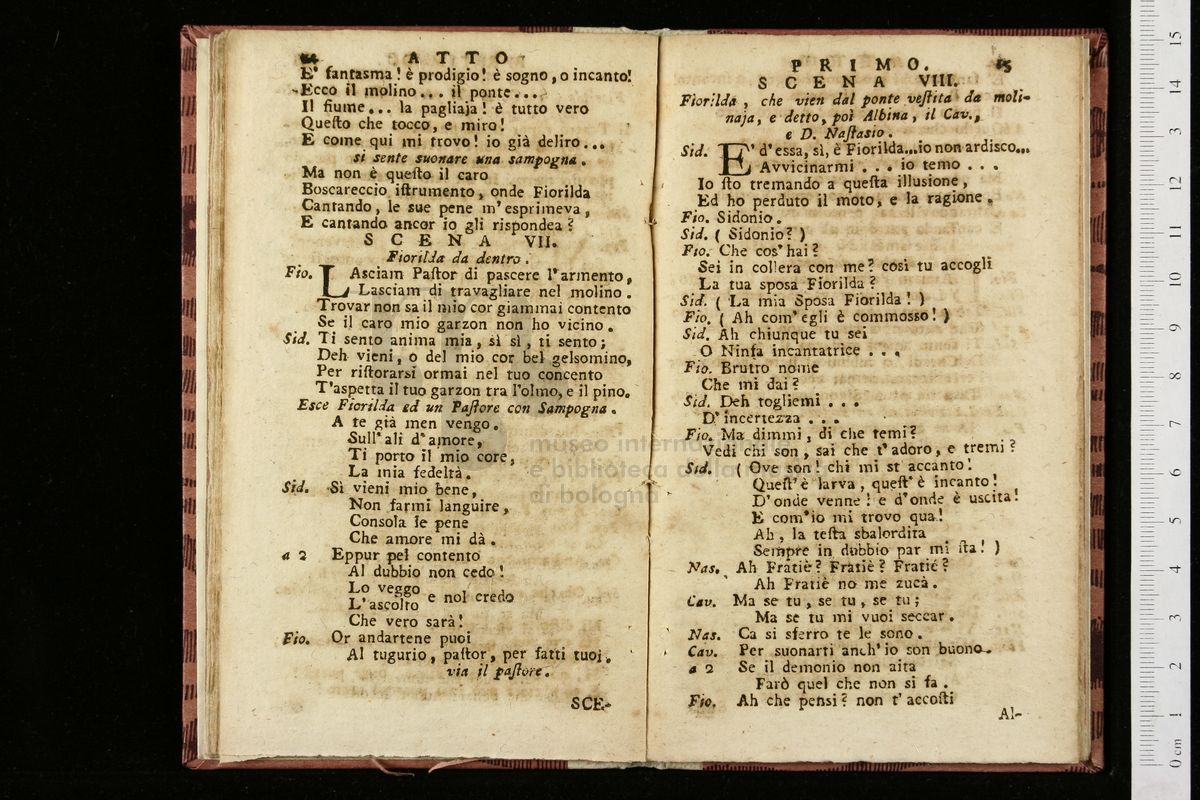 14 ATTO
E' fantasma! è prodigio! è sogno, o incanto!
Ecco il molino... il ponte...
Il fiume... la pagliaja! è tutto vero
Queſto che tocco, e miro!
E come qui mi trovo! io già deliro...
si sente suonare una sampogna.
Ma non è queſto il caro
Boscareccio iſtrumento, onde Fiorilda
Cantando, le sue pene m'esprimeva,
E cantando ancor io gli rispondea?
SCENA VII.
Fiorilda da dentro.
Fio. LAsciam Paſtor di pascere l'armento,
Lasciam di travagliare nel molino.
Trovar non sa il mio cor giammai contento
Se il caro mio garzon non ho vicino.
Sid. Ti sento anima mia, sì sì, ti sento;
Deh vieni, o del mio cor bel gelsomino,
Per riſtorarsi ormai nel tuo concento
T'aspetta il tuo garzon tra l'olmo, e il pino.
Esce Fiorilda ed un Paſtore con Sampogna.
A te già men vengo.
Sull'ali d'amore,
Ti porto il mio core,
La mia fedeltà.
Sid. Sì vieni mio bene,
Non farmi languire,
Consola le pene
Che amore mi dà.
a 2 Eppur pel contento
Al dubbio non cedo!
Lo veggo
L'ascolto e nol credo
Che vero sarà!
Fio. Or andartene puoi
Al tugurio, paſtor, per fatti tuoi.
via il paſtore.
SCE-
PRIMO. 15
SCENA VIII.
Fiorilda, che vien dal ponte veſtita da moli-
naja, e detto, poi Albina, il Cav.,
e D. Naſtasio.
Sid. E' d'essa, sì, è Fiorilda...io non ardisco...
Avvicinarmi... io temo...
Io ſto tremando a queſta illusione,
Ed ho perduto il moto, e la ragione.
Fio. Sidonio.
Sid. ( Sidonio? )
Fio. Che cos'hai?
Sei in collera con me? così tu accogli
La tua sposa Fiorilda?
Sid. ( La mia Sposa Fiorilda! )
Fio. ( Ah com'egli è commosso! )
Sid. Ah chiunque tu sei
O Ninfa incantatrice...
Fio. Brutro nome
Che mi dai?
Sid. Deh togliemi...
D'incertezza...
Fio. Ma dimmi, di che temi?
Vedi chi son, sai che t'adoro, e tremi?
Sid. ( Ove son! chi mi st accanto!
Queſt'è larva, queſt'è incanto!
D'onde venne! e d'onde è uscita!
E com'io mi trovo qua!
Ah, la teſta sbalordita
Sempre in dubbio par mi ſta! )
Nas. Ah Fratiè? Fratiè? Fratiè?
Ah Fratiè no me zucà.
Cav. Ma se tu, se tu, se tu;
Ma se tu mi vuoi seccar.
Nas. Ca si sferro te le sono.
Cav. Per suonarti anch'io son buono.
a 2 Se il demonio non aita
Farò quel che non si fa.
Fio. Ah che pensi? non t'accoſti
Al-
museo internazionale
e biblioteca della
di bologna
0 cm 1 2 3 4 5 6 7 8 9 10 11 12 13 14 15